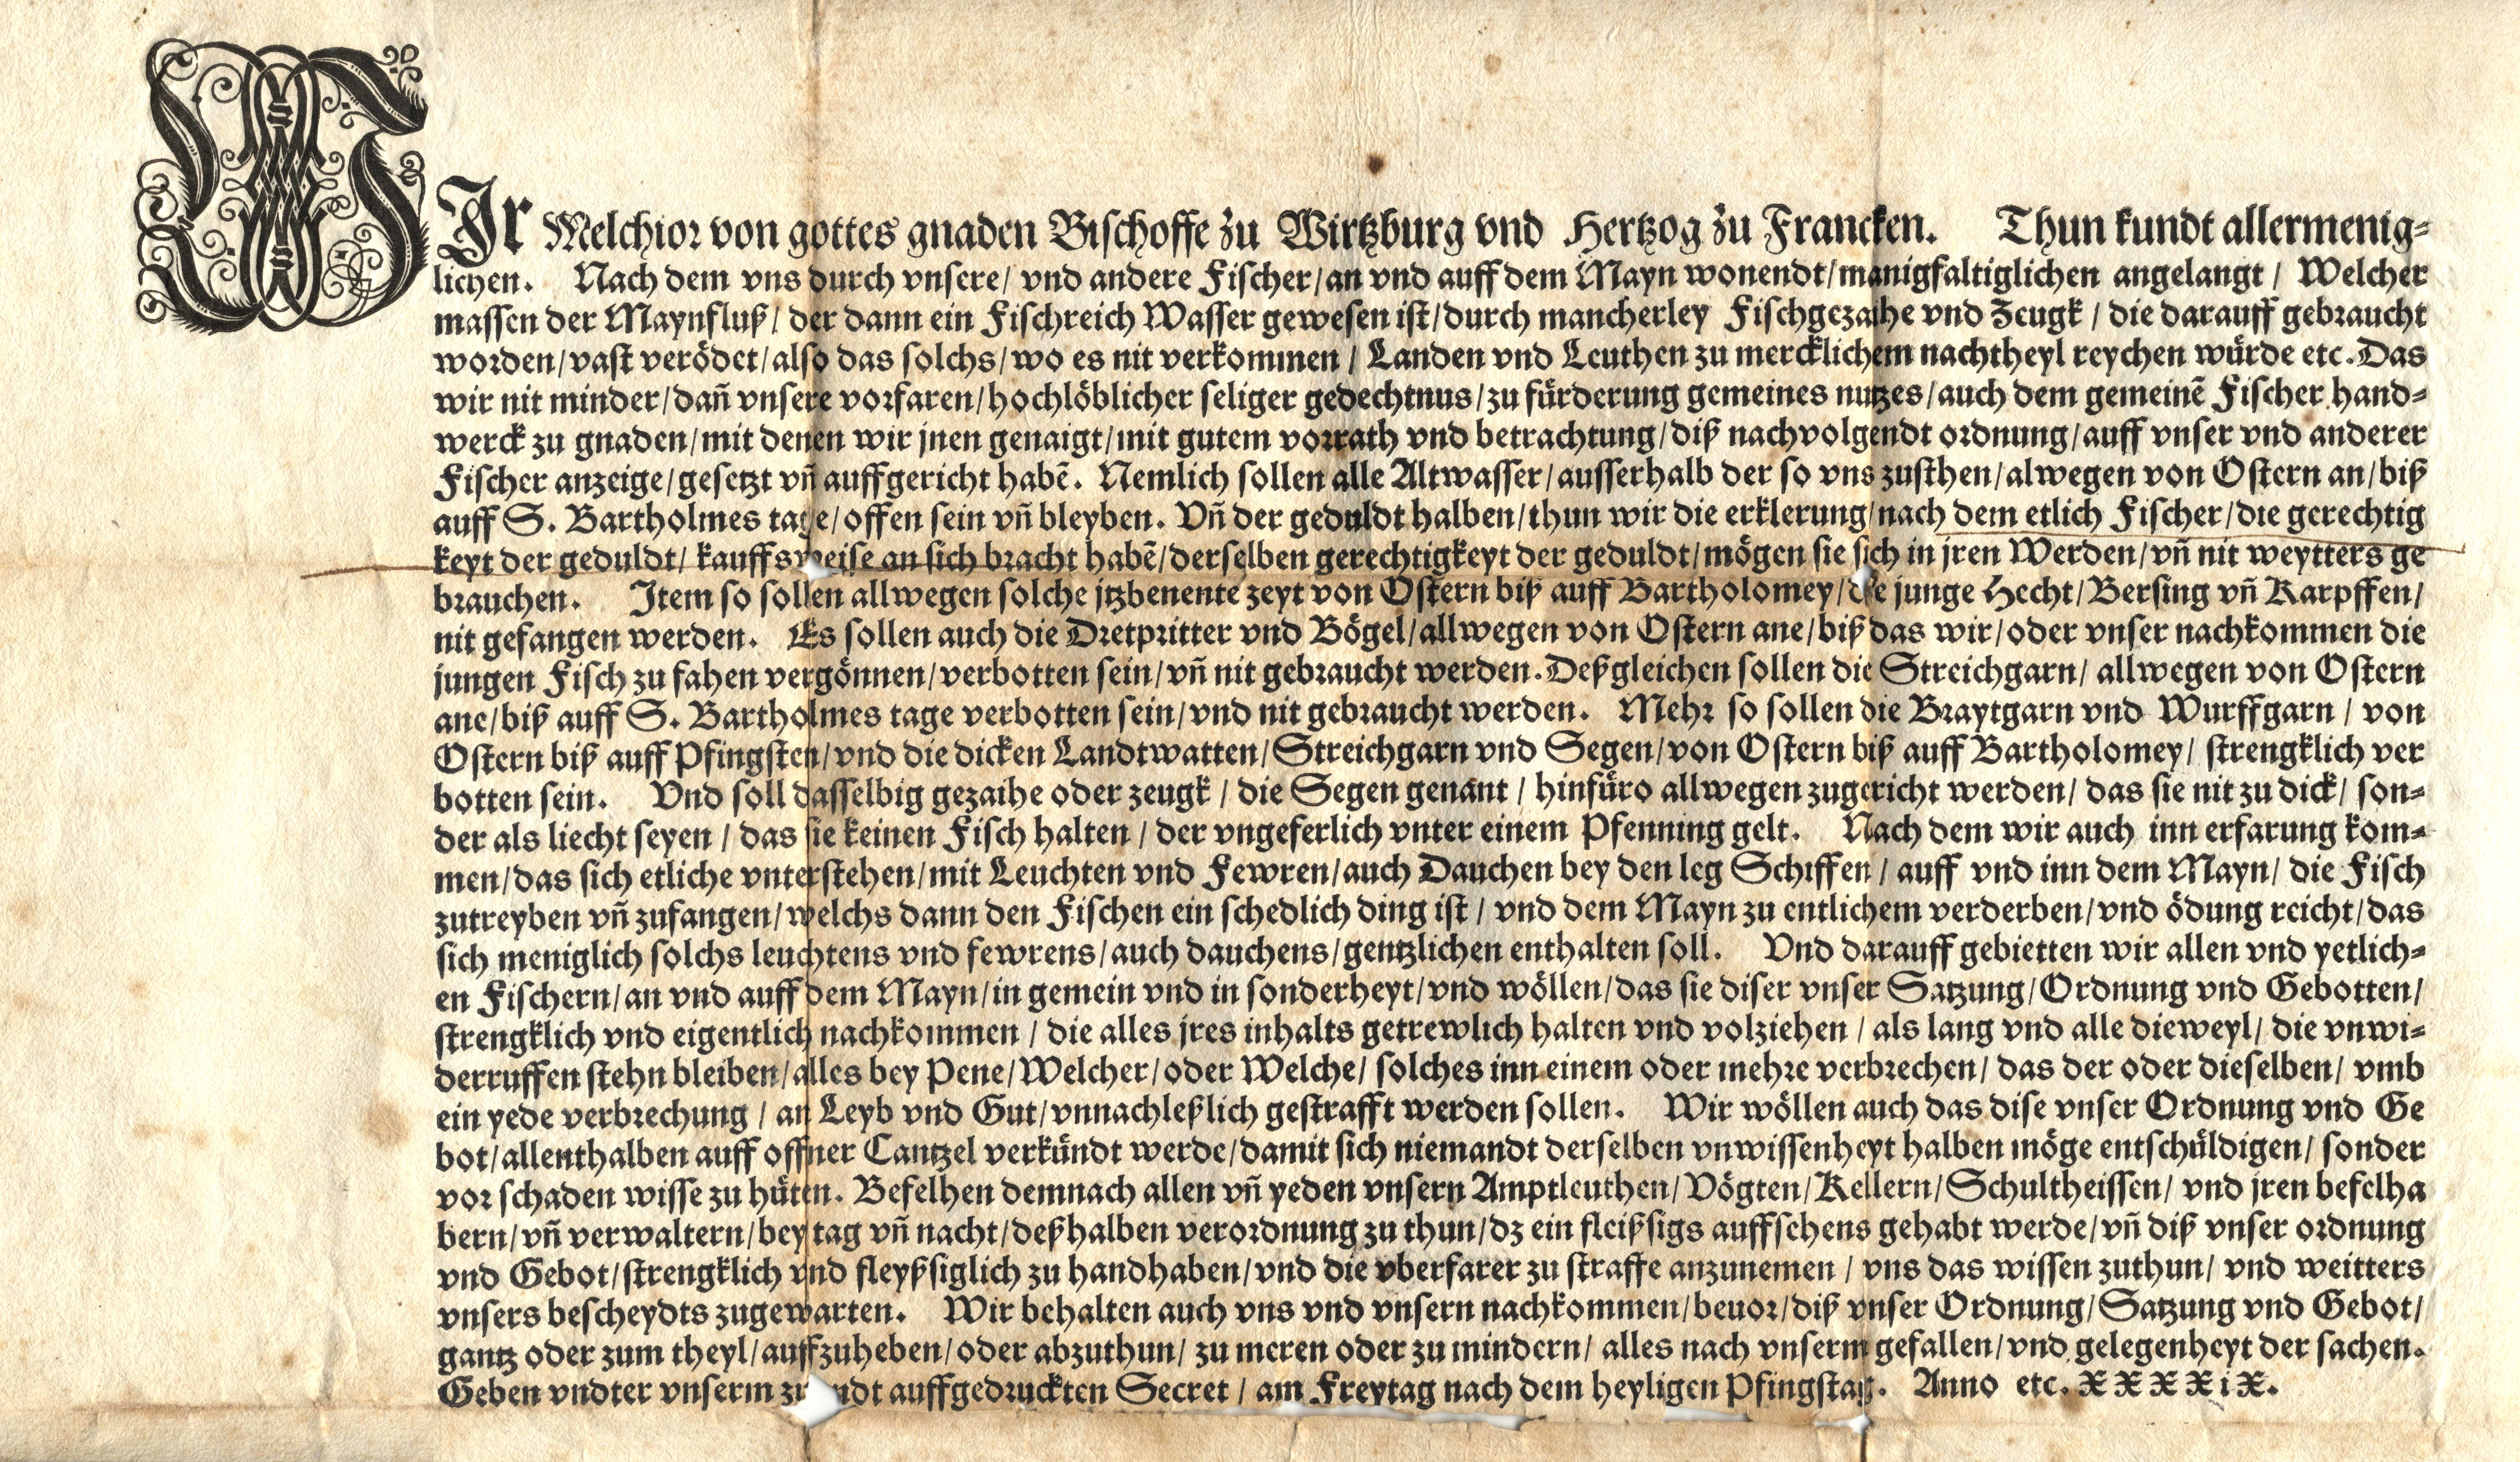 WIr Melchior von gottes gnaden Bischoffe zu Wirtzburg vnd Hertzog zu Francken. Thun kundt allermenig=
lichen. Nach dem vns durch vnsere/ vnd andere Fischer/an vnd auff dem Mayn wonendt/manigfaltiglichen angelangt / Welcher
massen der Maynfluß/ der dann ein Fischreich Wasser gewesen ist/durch mancherley Fischgezaihe vnd Zeugk / die darauff gebraucht
worden/vast verödet/also das solchs/wo es nit verkommen / Landen vnd Leuthen zu mercklichem nachtheyl reychen würde etc. Das
wir nit minder/dañ vnsere vorfaren/hochlöblicher seliger gedechtnus/zu fürderung gemeines nutzes/auch dem gemeinē Fischer hand=
werck zu gnaden/mit denen wir jnen genaigt/mit gutem vorrath vnd betrachtung/diß nachvolgendt ordnung/auff vnser vnd anderer
Fischer anzeige/gesetzt vñ auffgericht habē. Nemlich sollen alle Altwasser/ausserhalb der so vns zusthen/alwegen von Ostern an/biß
auff S. Bartholmes tage/offen sein vñ bleyben. Vñ der geduldt halben/thun wir die erklerung/nach dem etlich Fischer/die gerechtig
keyt der geduldt/ kauffsweise an sich bracht habē/derselben gerechtigkeyt der geduldt/mögen sie sich in jren Werden/vñ nit weytters ge
brauchen. Item so sollen allwegen solche jtzbenente zeyt von Ostern biß auff Bartholomey/die junge Hecht/Bersing vñ Karpffen/
nit gefangen werden. Es sollen auch die Dretpritter vnd Bögel/allwegen von Ostern ane/biß das wir/oder vnser nachkommen die
jungen Fisch zu fahen vergönnen/verbotten sein/vñ nit gebraucht werden. Deßgleichen sollen die Streichgarn/ allwegen von Ostern
ane/biß auff S. Bartholmes tage verbotten sein/vnd nit gebraucht werden. Mehr so sollen die Braytgarn vnd Wurffgarn / von
Ostern biß auff Pfingsten/vnd die dicken Landtwatten/Streichgarn vnd Segen/von Ostern biß auff Bartholomey/ strengklich ver
botten sein. Vnd soll dasselbig gezaihe oder zeugk / die Segen genant / hinfüro allwegen zugericht werden/ das sie nit zu dick/ son=
der als liecht seyen / das sie keinen Fisch halten / der vngeferlich vnter einem Pfenning gelt. Nach dem wir auch inn erfarung kom=
men/das sich etliche vnterstehen/mit Leuchten vnd Fewren/auch Dauchen bey den leg Schiffen / auff vnd inn dem Mayn/ die Fisch
zutreyben vñ zufangen/welchs dann den Fischen ein schedlich ding ist / vnd dem Mayn zu entlichem verderben/vnd ödung reicht/das
sich meniglich solchs leuchtens vnd fewrens/auch dauchens/gentzlichen enthalten soll. Vnd darauff gebietten wir allen vnd yetlich=
en Fischern/an vnd auff dem Mayn/in gemein vnd in sonderheyt/vnd wöllen/das sie diser vnser Satzung/Ordnung vnd Gebotten/
strengklich vnd eigentlich nachkommen / die alles jres inhalts getrewlich halten vnd volziehen / als lang vnd alle dieweyl/ die vnwi=
derruffen stehn bleiben/alles bey Pene/Welcher/oder Welche/ solches inn einem oder mehre verbrechen/ das der oder dieselben/ vmb
ein yede verbrechung / an Leyb vnd Gut/vnnachleßlich gestrafft werden sollen. Wir wöllen auch das dise vnser Ordnung vnd Ge
bot/allenthalben auff offner Cantzel verkündt werde/damit sich niemandt derselben vnwissenheyt halben möge entschüldigen/ sonder
vor schaden wisse zu hüten. Befelhen demnach allen vñ yeden vnsern Amptleuthen/Vögten/Kellern/Schultheissen/ vnd jren befelha
bern/vñ verwaltern/bey tag vñ nacht/deßhalben verordnung zu thun/dz ein fleißsigs auffsehens gehabt werde/vñ diß vnser ordnung
vnd Gebot/strengklich vnd fleyßsiglich zu handhaben/vnd die vberfarer zu straffe anzunemen / vns das wissen zuthun/ vnd weitters
vnsers bescheydts zugewarten. Wir behalten auch vns vnd vnsern nachkommen/beuor/diß vnser Ordnung/Satzung vnd Gebot/
gantz oder zum theyl/auffzuheben/oder abzuthun/ zu meren oder zu mindern/ alles nach vnserm gefallen/vnd gelegenheyt der sachen.
Geben vndter vnserm auffgedruckten Secret / am Freytag nach dem heyligen Pfingstag. Anno etc. XXXXiX.